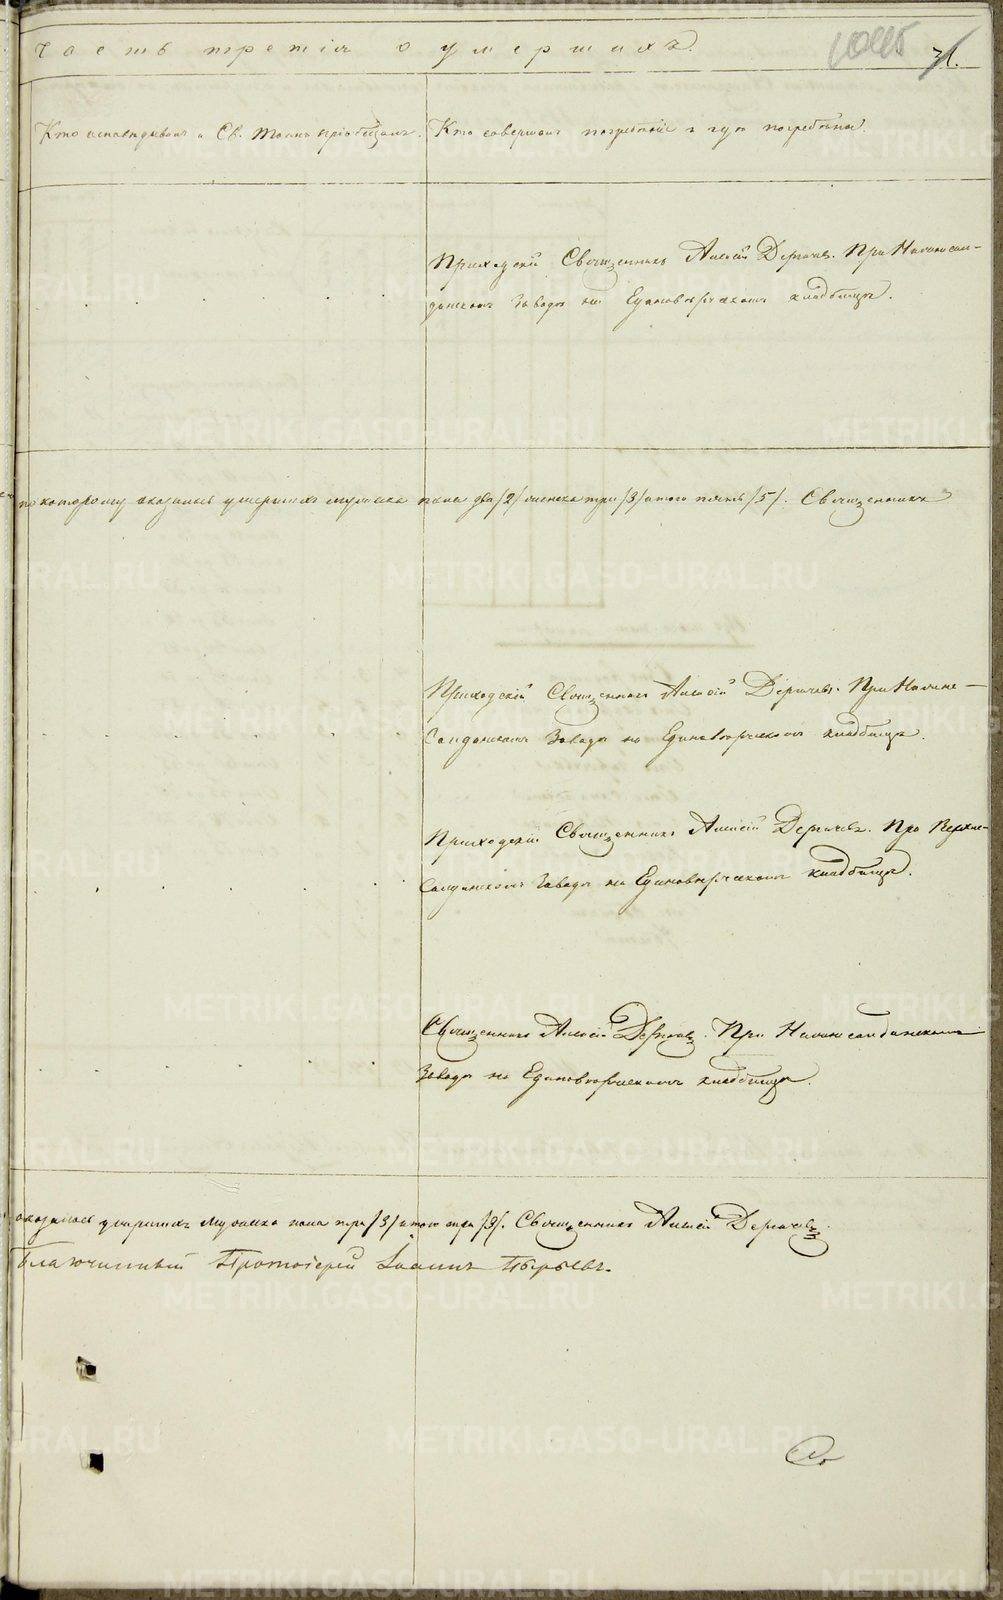 Часть третія о умершихъ.
31.
Кто исповѣдывалъ и Св. Тайнъ пріобщалъ.
Кто совершалъ погребеніе и гдѣ погребены.
Приходскій Священникъ Алексій Дерягинъ. При Нижнесал-
динскомъ Заводѣ на Единовѣрческомъ кладбищѣ.
по которому оказалось умершихъ мужеска пола два /2/ женска три /3/ итого пять /5/. Священникъ
Приходскій Священникъ Алексій При Нижне-
Салдинскомъ Заводѣ на Единовѣрческомъ кладбищѣ.
Приходскій Священникъ Алексій При Верхне-
Салдинскомъ Заводѣ на Единовѣрческомъ кладбищѣ.
Священникъ Алексій При Нижнесалдинскомъ
Заводѣ на Единовѣрческомъ кладбищѣ.
оказалось умершихъ мужеска пола три /3/ итого три /3/. Священникъ Алексій
Благочинный Протоіерей Іоаннъ Пырьевъ.
METRIKI.GASO-URAL.RU